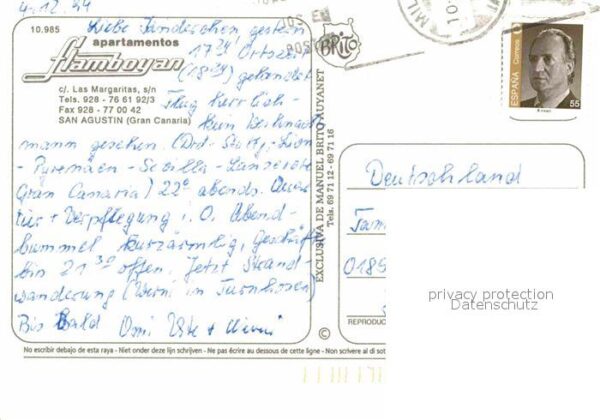 4.12.94
Liebe
gestern
10.985
apartamentos
Flamboyan
17 24 Ortszeit
(18 24) gelandet
c/. Las Margaritas, s/n
Tels. 928 - 76 61 92/3
Fax 928 - 77 00 42
SAN AGUSTIN (Gran Canaria)
Flug herrlich -
kein Weihnachts
mann gesehen. (Drd - Stuttg. - Lion
- Pyrenäen - Sevilla - Lanzerote
Gran Canaria) 22° abends. Quar
tier + Verpflegung i. O. Abend-
bummel kurzärmlig, Geschäfte
bis 21 30 offen. Jetzt Strand-
wanderung ( in Turnhosen)
Bis Bald Omi Ute +
No escribir debajo de esta raya - Niet onder deze lijn schrijven - Ne pas écrire au dessous de cette ligne - Non scrivere al di sot
EXCLUSIVA DE MANUEL BRITO AUYANET
Tels. 69 71 12 - 69 71 16
©
BRITO
ESPAÑA
Correos
55
Deutschland
Fam
0189
REPRODUC
privacy protection
Datenschutz